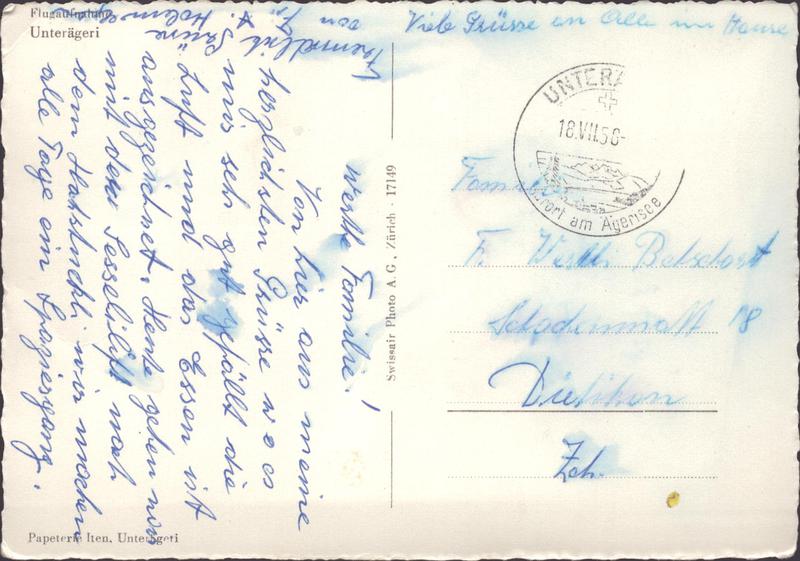 Flugaufnahme
Unterägeri
Viele Grüsse an Alle im Hause
werte Familie!
Von hier aus meine
herzlichsten Grüsse wo es
mir sehr gut gefällt die
Luft und das Essen ist
ausgezeichnet. Heute gehen wir
mit dem Sessellift nach
dem Hochstuckli wir machen
alle Tage ein Spaziergang.
Freundlich
von
Swissair Photo A. G., Zürich - 17149
UNTERÄ
18.VII.56-
Kurort am Ägerisee
Familie
F. Werthi
18
Dietikon
Zch.
Papeterie Iten, Unterägeri